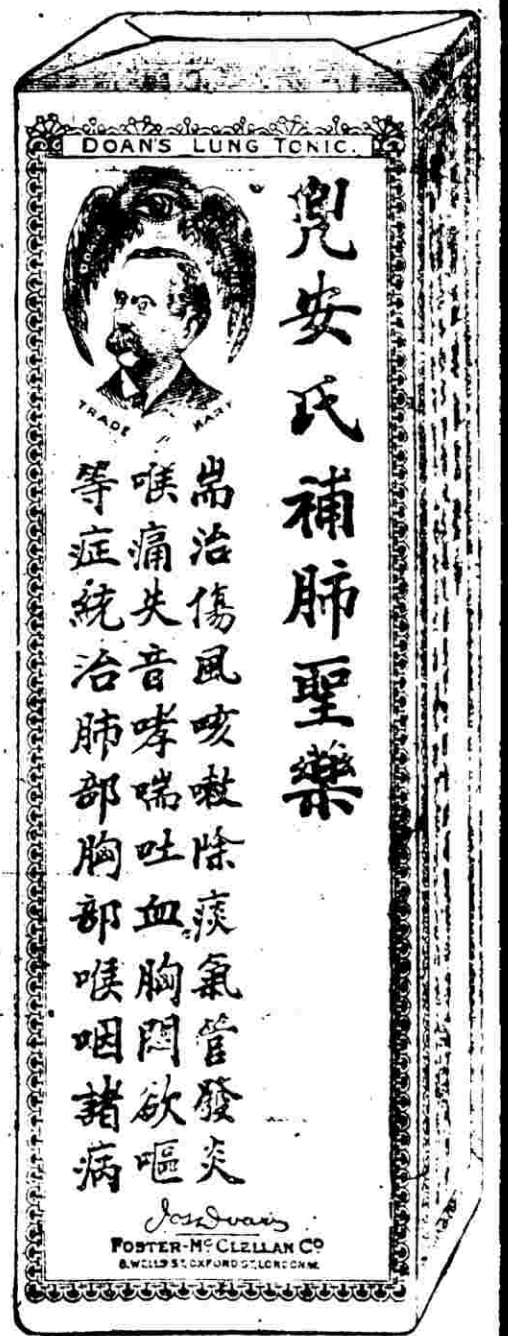 DOAN'S LUNG TONIC.
TRADE MARK
兜安氏補肺聖藥
耑治傷風咳嗽除痰氣管發炎
喉痛失音哮喘吐血胸悶欲嘔
等症統治肺部胸部喉咽諸病
FOSTER-McCLELLAN Co
8, WELLS ST, OXFORD ST, LONDON.W.